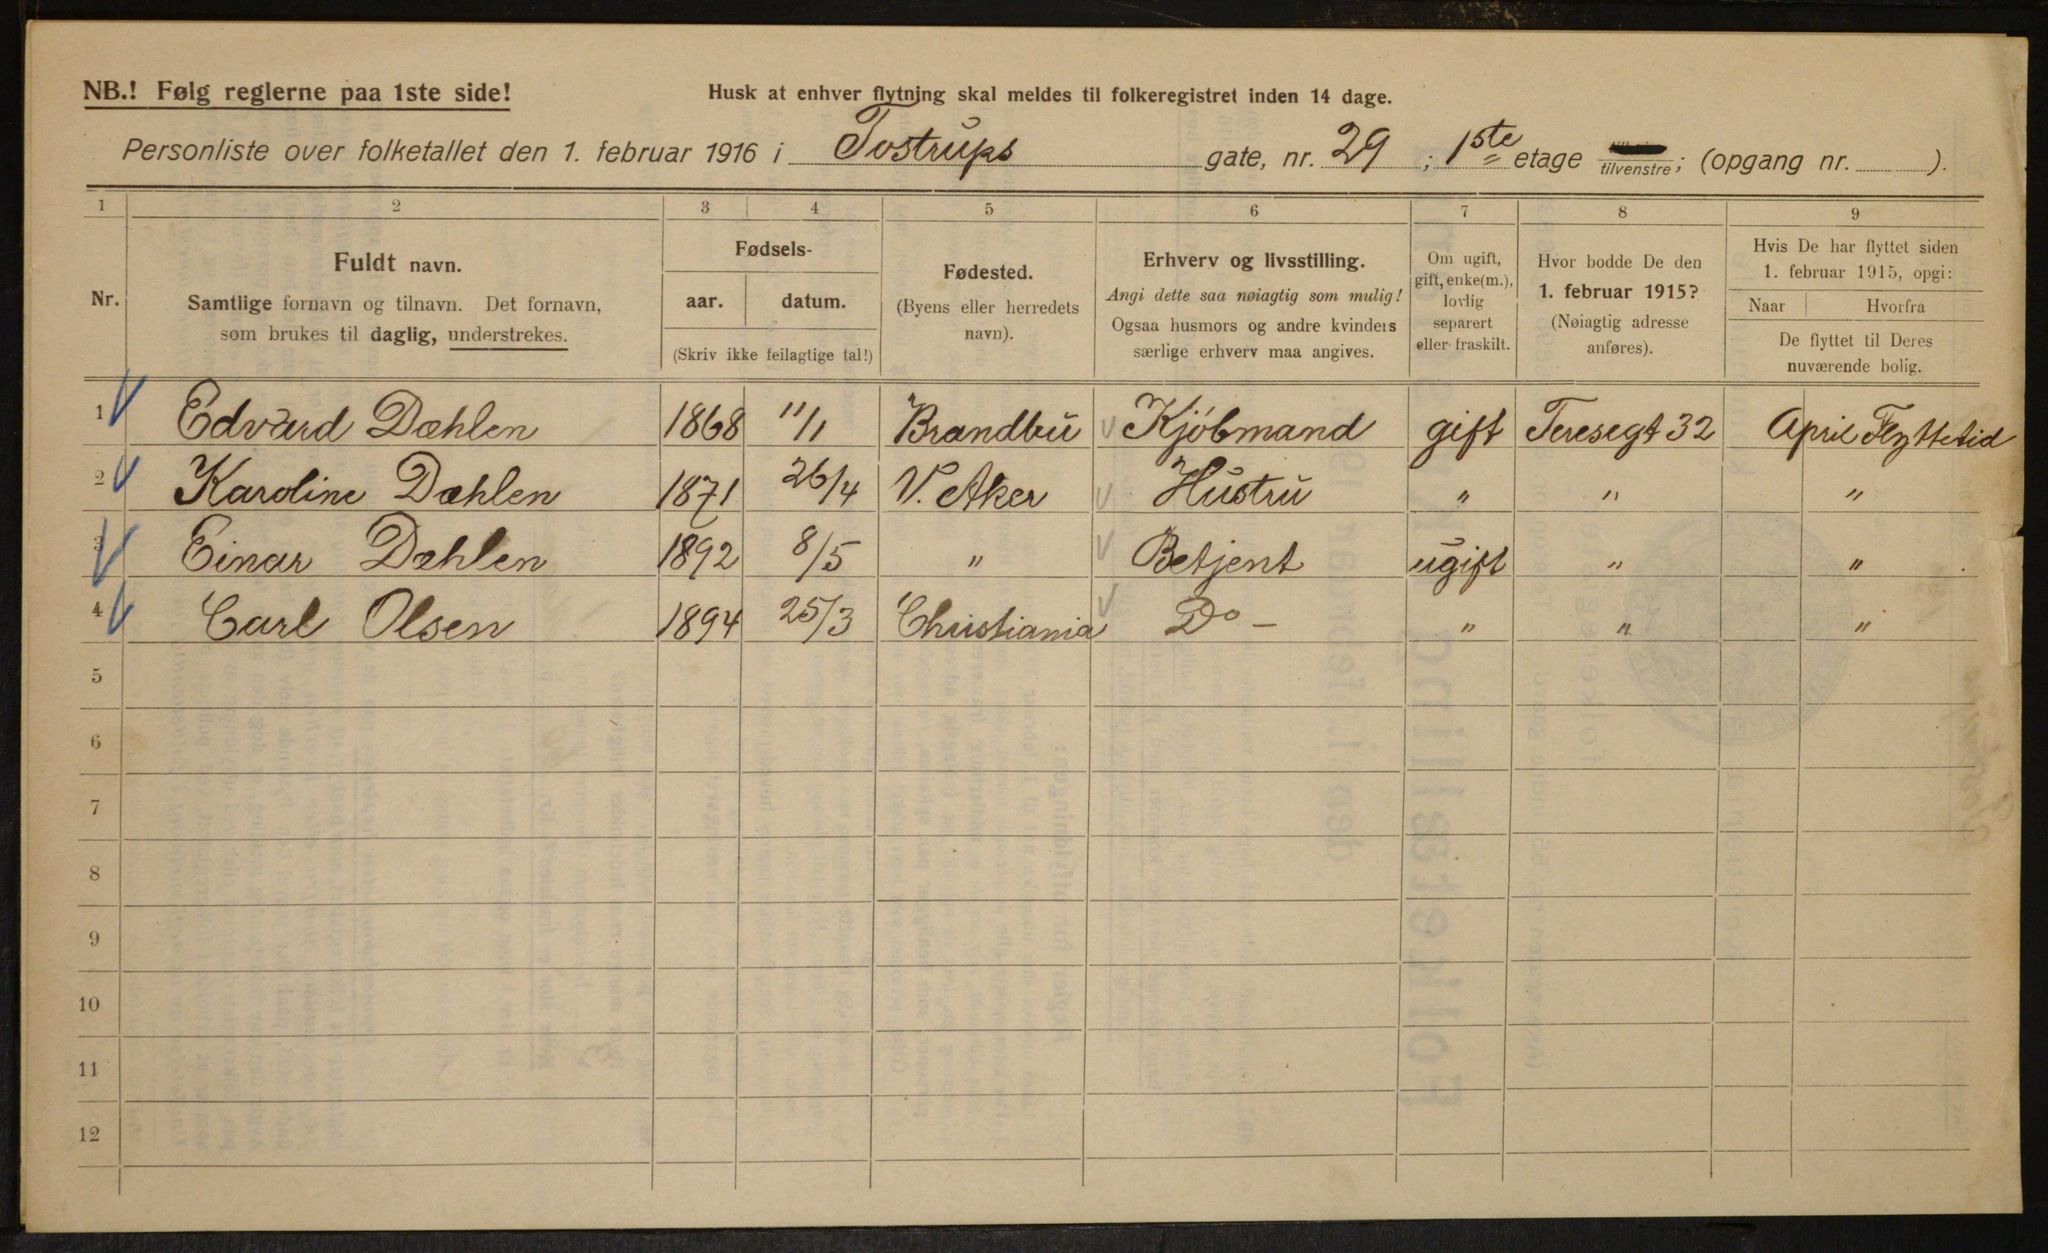 NB.! Følg reglerne paa 1ste side!
Husk at enhver flytning skal meldes til folkeregistret inden 14 dage.
Personliste over folketallet den 1. februar 1916 i Tostrups gate, nr. 29 ; 1ste etage tilvenstre; (opgang nr. ).
1 2 3 4 5 6 7 8 9
Nr.
Fuldt navn.
Samtlige fornavn og tilnavn. Det fornavn,
som brukes til daglig, understrekes.
Fødsels-
aar. datum.
(Skriv ikke feilagtige tal!)
Fødested.
(Byens eller herredets
navn).
Erhverv og livsstilling.
Angi dette saa nøiagtig som mulig!
Ogsaa husmors og andre kvinders
særlige erhverv maa angives.
Om ugift,
gift, enke(m.),
lovlig
separert
eller fraskilt.
Hvor bodde De den
1. februar 1915?
(Nøiagtig adresse
anføres).
Hvis De har flyttet siden
1. februar 1915, opgi:
Naar Hvorfra
De flyttet til Deres
nuværende bolig.
1 Edvard Dæhlen 1868 11/1 Brandbu Kjøbmand gift Teresegt 32 April Flyttetid
2 Karoline Dæhlen 1871 26/4 V. Aker Hustru " " "
3 Einar Dæhlen 1892 8/5 " Betjent ugift " "
4 Carl Olsen 1894 25/3 Christiania Do - " " "
5
6
7
8
9
10
11
12